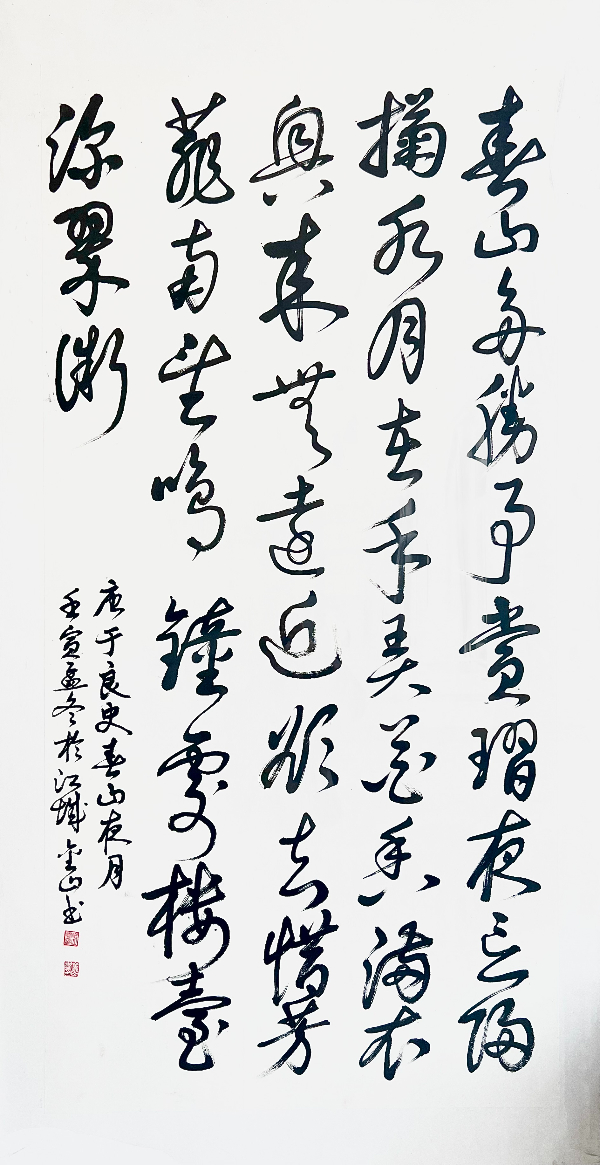 春山多勝事賞翫夜忘歸
掬水月在手弄花香滿衣
興來無遠近欲去惜芳
菲南望鳴鐘處樓臺
深翠微
唐于良史春山夜月
壬寅孟冬於江城金山书